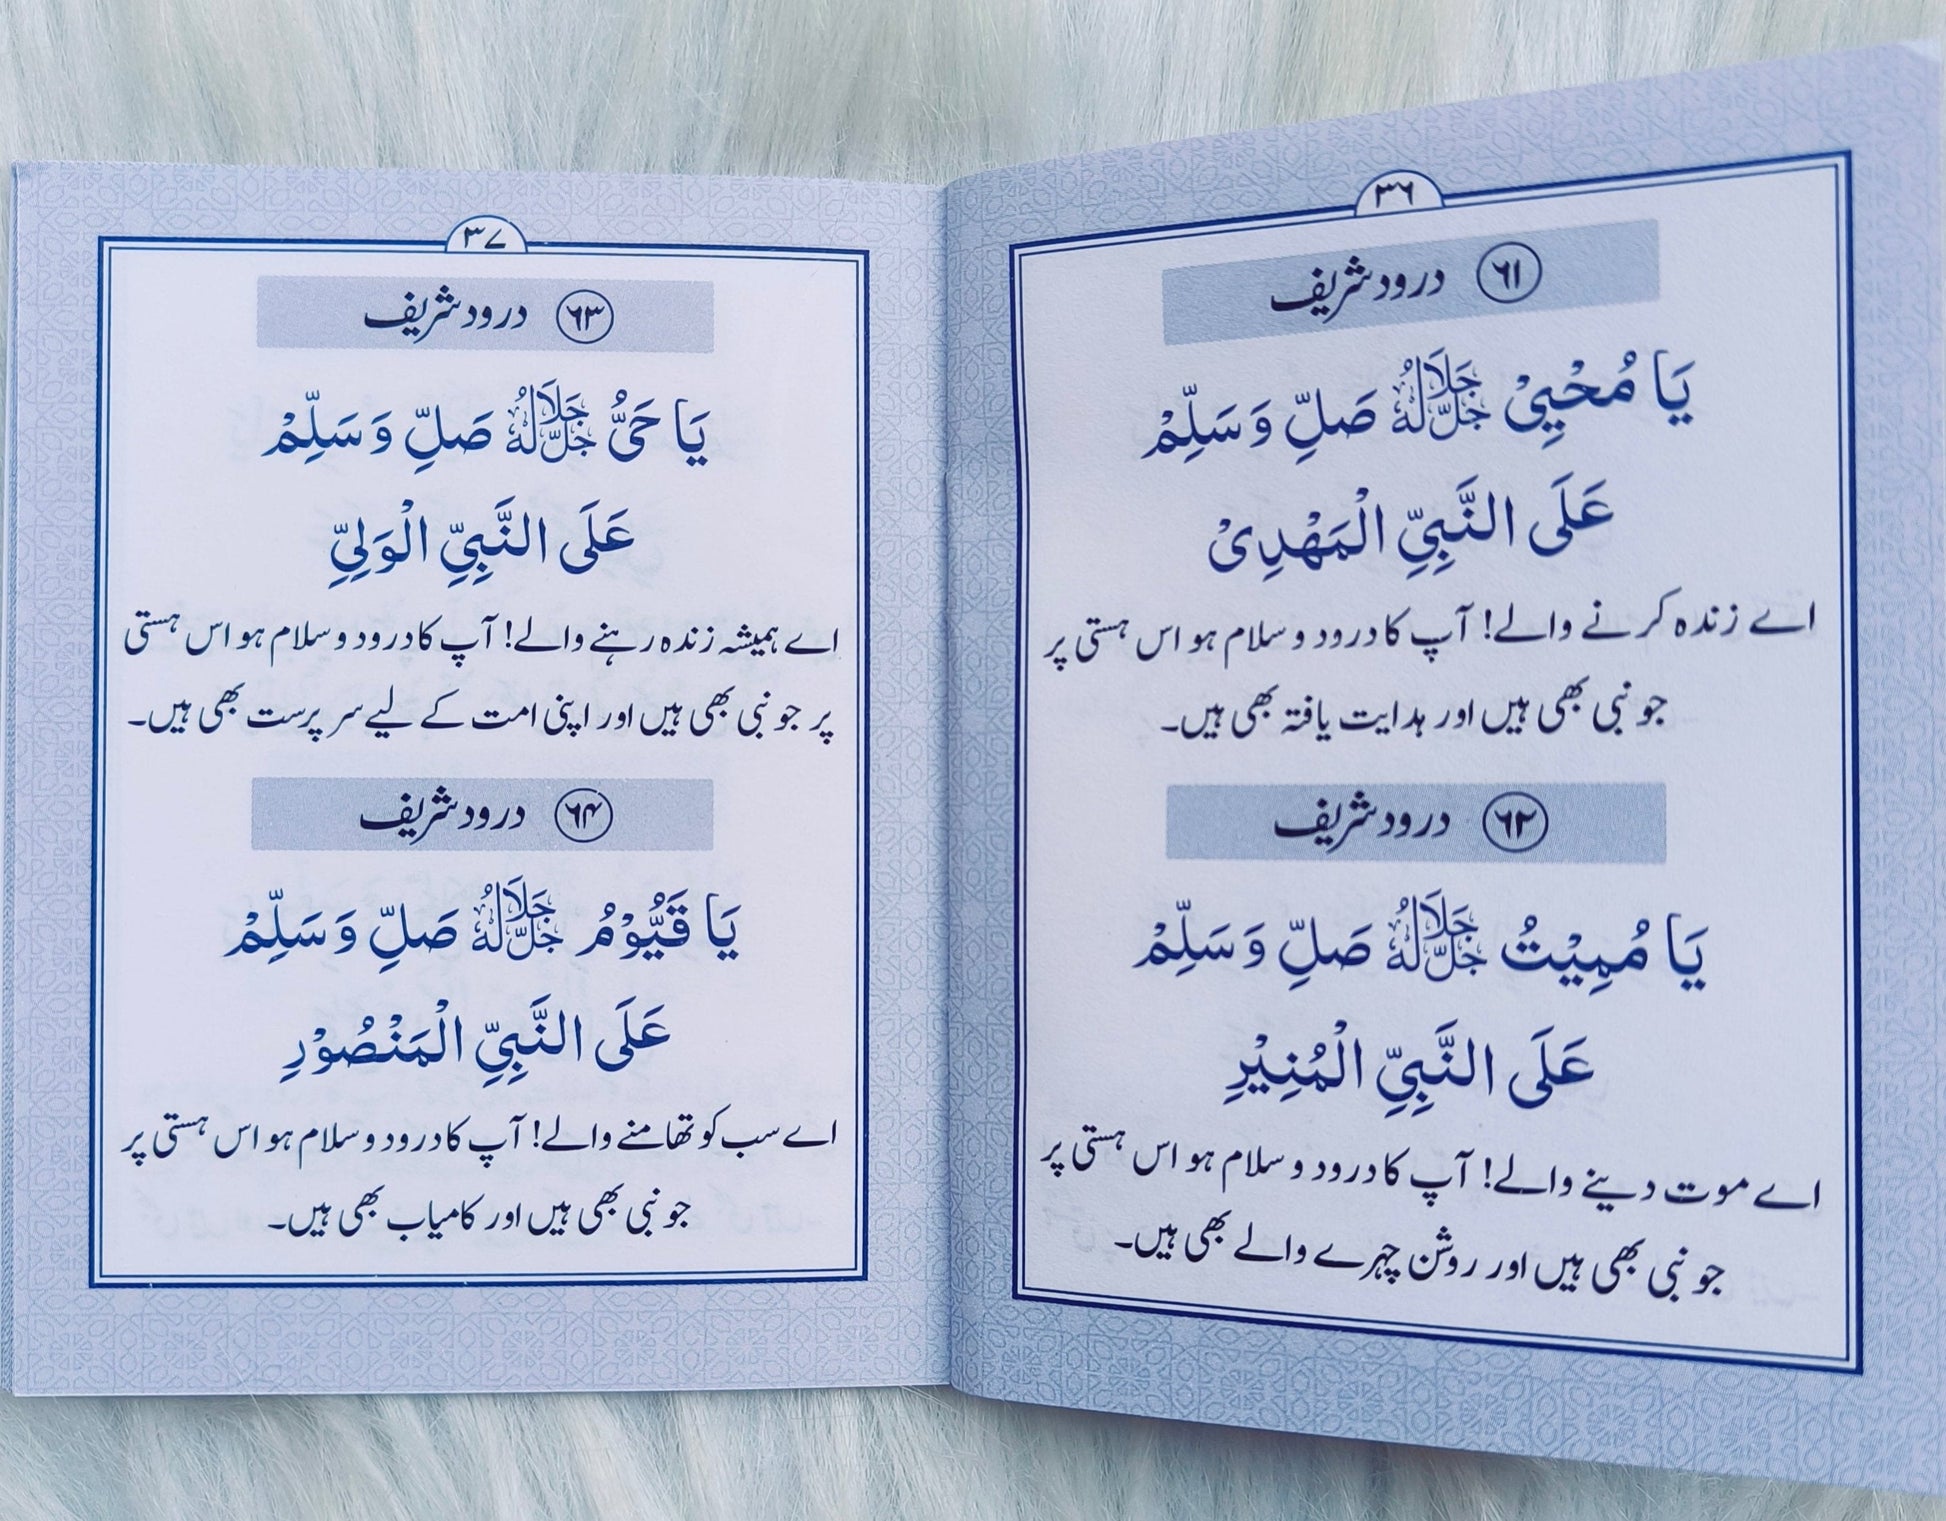 ۳۶
۶۱ درود شریف
یَا مُحْیِیْ جَلَّ جَلَالُهٗ صَلِّ وَسَلِّمْ
عَلَی النَّبِیِّ الْمَهْدِیْ
اے زندہ کرنے والے! آپ کا درود و سلام ہو اس ہستی پر
جو نبی بھی ہیں اور ہدایت یافتہ بھی ہیں۔
۶۲ درود شریف
یَا مُمِیْتُ جَلَّ جَلَالُهٗ صَلِّ وَسَلِّمْ
عَلَی النَّبِیِّ الْمُنِیْرِ
اے موت دینے والے! آپ کا درود و سلام ہو اس ہستی پر
جو نبی بھی ہیں اور روشن چہرے والے بھی ہیں۔
۳۷
۶۳ درود شریف
یَا حَیُّ جَلَّ جَلَالُهٗ صَلِّ وَسَلِّمْ
عَلَی النَّبِیِّ الْوَلِیِّ
اے ہمیشہ زندہ رہنے والے! آپ کا درود و سلام ہو اس ہستی
پر جو نبی بھی ہیں اور اپنی امت کے لیے سرپرست بھی ہیں۔
۶۴ درود شریف
یَا قَیُّوْمُ جَلَّ جَلَالُهٗ صَلِّ وَسَلِّمْ
عَلَی النَّبِیِّ الْمَنْصُوْرِ
اے سب کو تھامنے والے! آپ کا درود و سلام ہو اس ہستی پر
جو نبی بھی ہیں اور کامیاب بھی ہیں۔